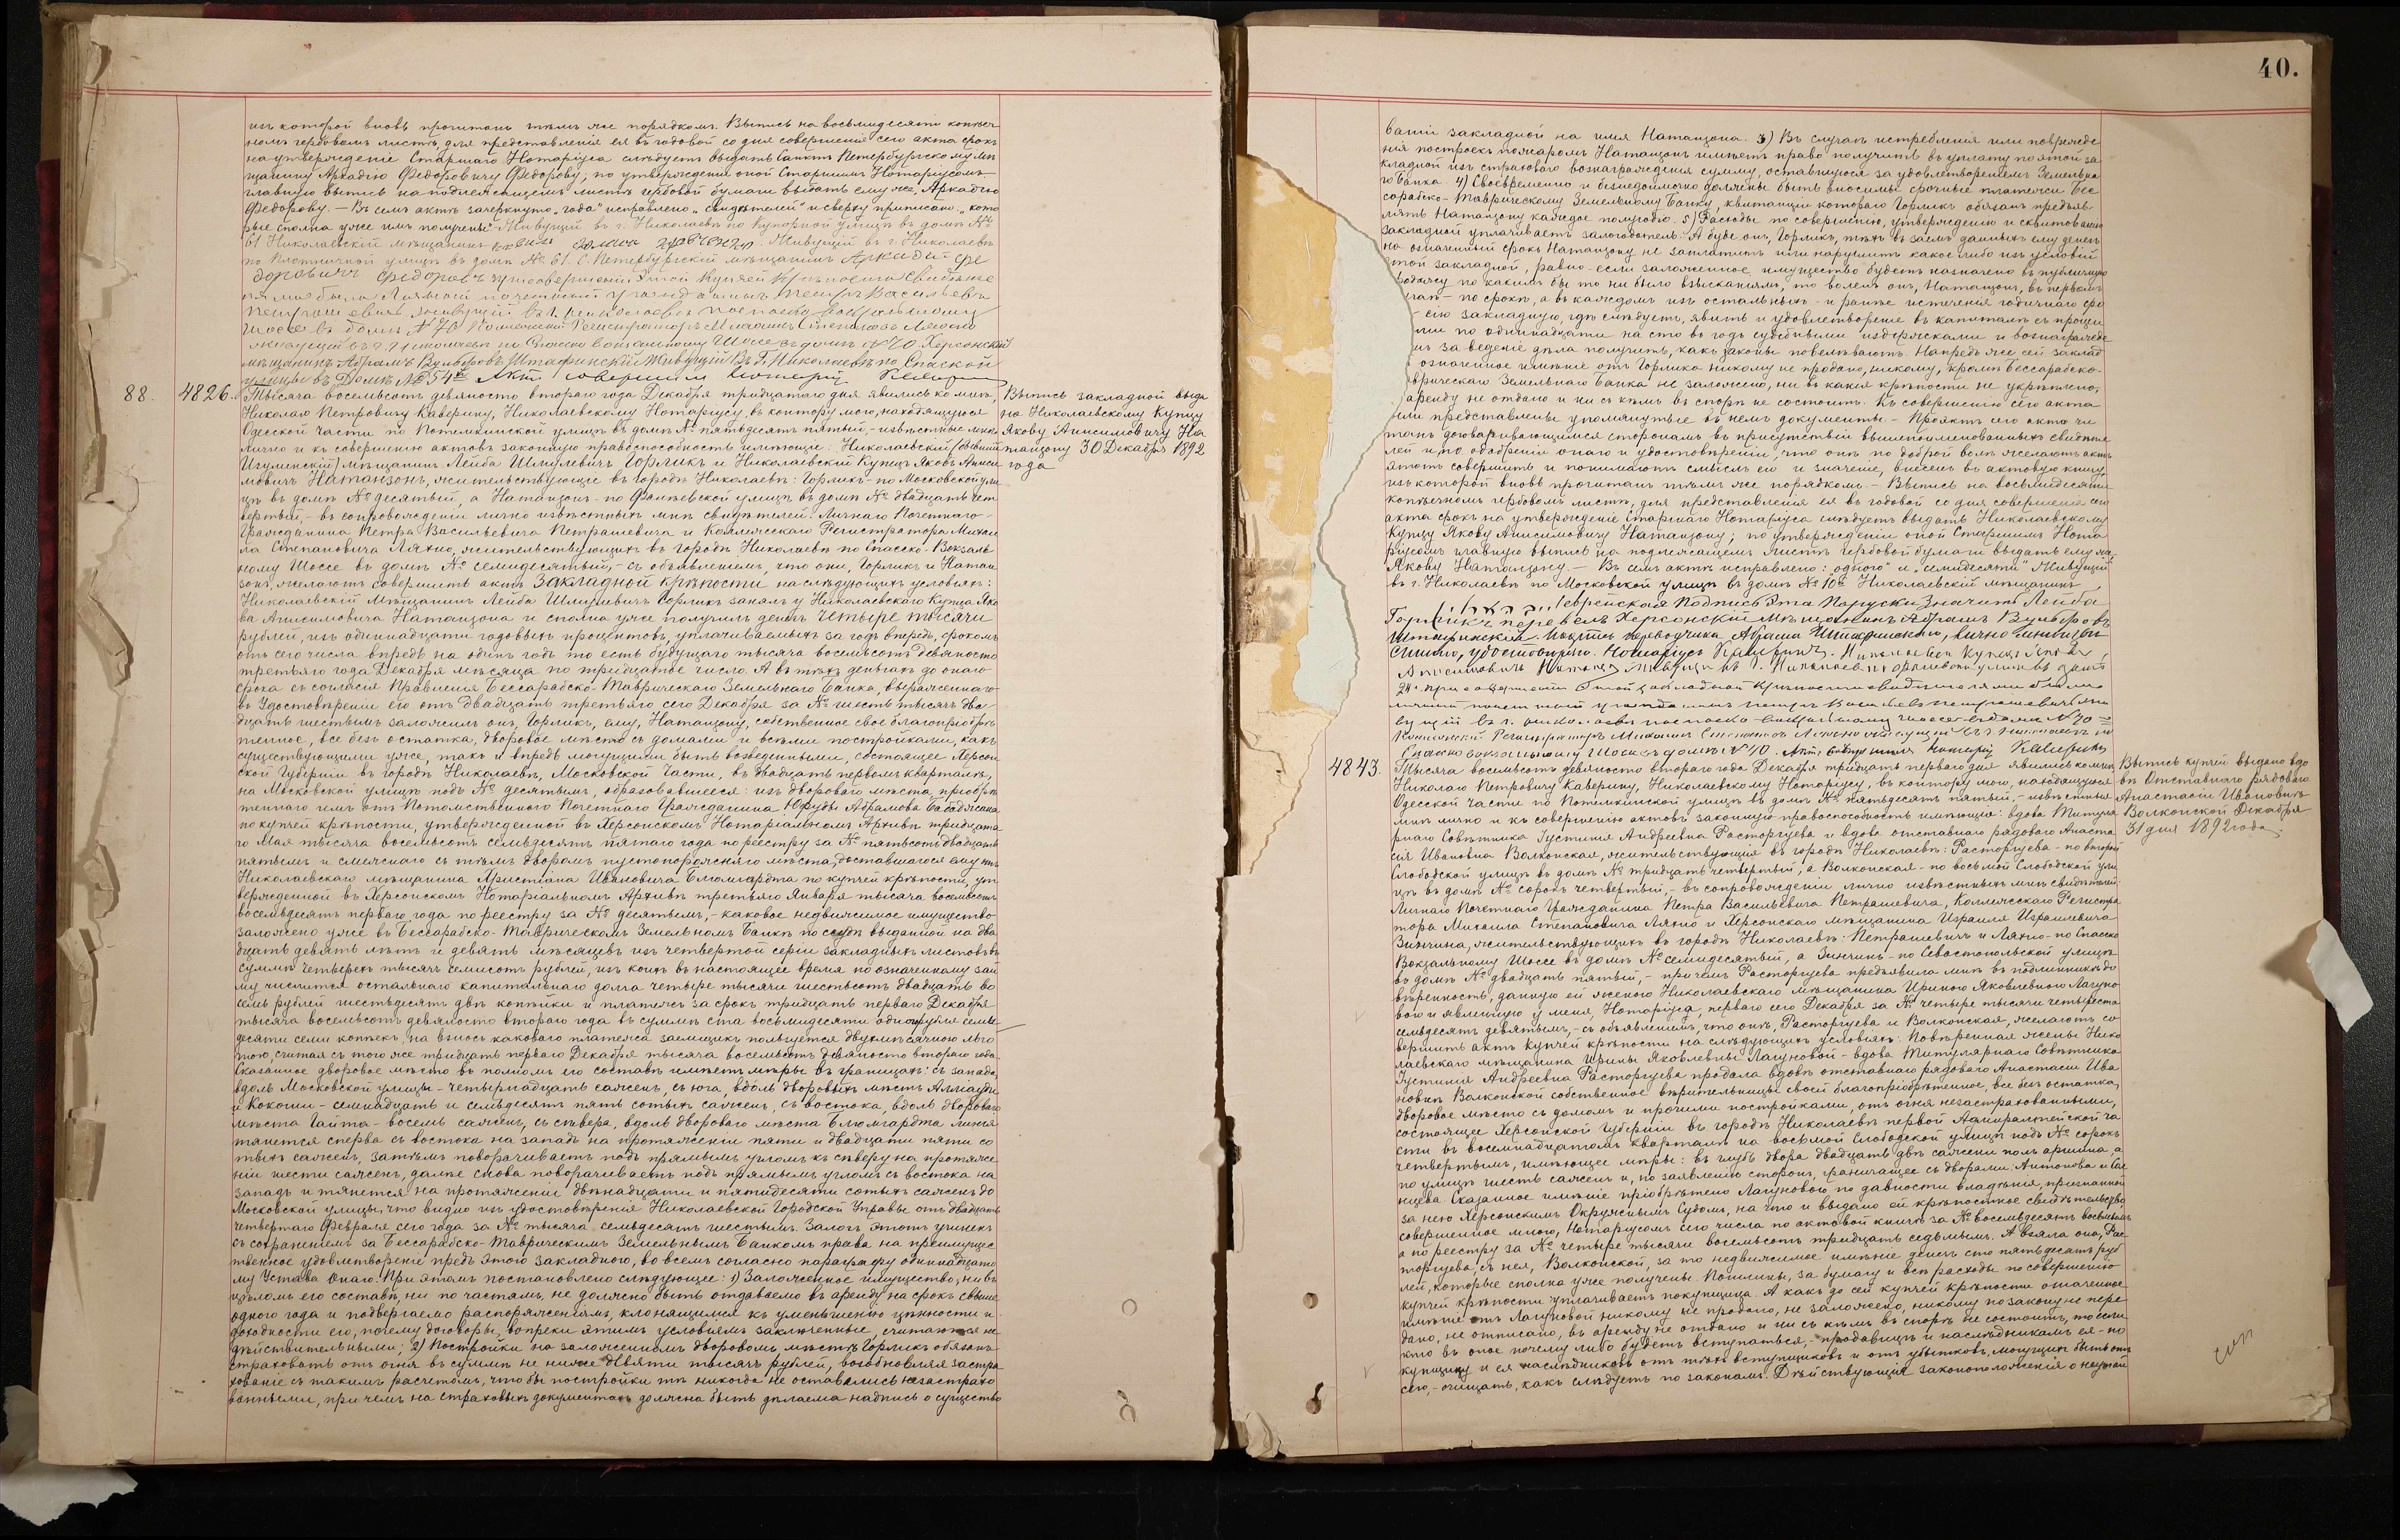 40.
изъ которой вновь прочитанъ тѣмъ же порядкомъ. Выпись на восьмидесяти копѣеч
номъ гербовомъ листѣ, для представленія ея въ годовой со дня совершенія сего акта срокъ
на утвержденіе Старшаго Нотаріуса слѣдуетъ выдать Санктъ Петербургскому мѣ
щанину Аркадію Федоровичу Федорову; по утвержденіи оной Старшимъ Нотаріусомъ
главную выпись на подлежащемъ листѣ гербовой бумаги выдать ему же, Аркадію
Федорову. — Въ семъ актѣ зачеркнуто „года“ исправлено „свидѣтелей“ и сверху приписано: „кото
рые сполна уже имъ получены“ Живущій въ г. Николаевѣ по Купорной улицѣ въ домѣ №
61 Николаевскій мѣщанинъ Живущій въ г. Николаевѣ
по Плотничной улицѣ въ домѣ № 61. С. Петербургскій мѣщанинъ Аркадій Фе
доровичъ Федоровъ при совершеніи этой купчей крѣпости свидѣте
лями были Личный почетный гражданинъ Петръ Васильевъ
Петрашевичъ живущій въ г. Николаевѣ по Спасско Вокзальному
шоссе въ домѣ № 70 Коллежскій Регистраторъ Михаилъ Степановъ Ляхно
живущій въ г. Николаевѣ по Спасско Вокзальному Шоссе въ домѣ № 70. Херсонскій
мѣщанинъ Абрамъ Вульфовъ Штафинскій Живущій въ г. Николаевѣ по Спаской
улицѣ въ Домѣ № 54й Актъ совершилъ Нотаріусъ
88. 4826. Тысяча восемьсотъ девяносто втораго года Декабря тридцатаго дня явились ко мнѣ,
Николаю Петровичу Каверину, Николаевскому Нотаріусу, въ контору мою, находящуюся
Одесской части по Потемкинской улицѣ въ домѣ № пятьдесятъ пятый, — извѣстные мнѣ
лично и къ совершенію актовъ законную правоспособность имѣющіе: Николаевскій (бывшій
Игуменскій) мѣщанинъ Лейба Шмулевичъ Горликъ и Николаевскій Купецъ Яковъ Аниси
мовичъ Натанзонъ, жительствующіе въ городѣ Николаевѣ: Горликъ — по Московской ули
цѣ въ домѣ № десятый, а Натанзонъ — по Фалѣевской улицѣ въ домѣ № двадцать чет
вертый, — въ сопровожденіи лично извѣстныхъ мнѣ свидѣтелей: Личнаго Почетнаго
Гражданина Петра Васильевича Петрашевича и Коллежскаго Регистратора Михаи
ла Степановича Ляхно, жительствующихъ въ городѣ Николаевѣ по Спасско-Вокзаль
ному Шоссе въ домѣ № семидесятый, — съ объявленіемъ, что они, Горликъ и Натан
зонъ, желаютъ совершить актъ Закладной крѣпости на слѣдующихъ условіяхъ:
Николаевскій Мѣщанинъ Лейба Шмулевичъ Горликъ занялъ у Николаевскаго Купца Яко
ва Анисимовича Натанзона и сполна уже получилъ денегъ Четыре тысячи
рублей, изъ одиннадцати годовыхъ процентовъ, уплачиваемыхъ за годъ впередъ, срокомъ
отъ сего числа впредь на одинъ годъ то есть будущаго тысяча восемьсотъ девяносто
третьяго года Декабря мѣсяца по тридцатое число. А въ тѣхъ деньгахъ до онаго
срока съ согласія Правленія Бессарабско-Таврическаго Земельнаго Банка, выраженнаго
въ Удостовѣреніи его отъ двадцать третьяго сего Декабря за № шесть тысячъ два
дцать шестымъ заложилъ онъ, Горликъ, ему, Натанзону, собственное свое благопріобрѣ
тенное, все безъ остатка, дворовое мѣсто съ домами и всѣми постройками, какъ
существующими уже, такъ и впредь могущими быть возведенными, состоящее Херсон
ской Губерніи въ городѣ Николаевѣ, Московской Части, въ двадцать первомъ кварталѣ,
на Московской улицѣ подъ № десятымъ, образовавшееся: изъ двороваго мѣста, пріобрѣ
теннаго имъ отъ Потомственнаго Почетнаго Гражданина Юфуды Абрамова Бабаджана
по купчей крѣпости, утвержденной въ Херсонскомъ Нотаріальномъ Архивѣ тридцата
го Мая тысяча восемьсотъ семьдесятъ пятаго года по реестру за № пятьсотъ двадцать
пятымъ и смежнаго съ тѣмъ дворомъ пустопорожняго мѣста, доставшагося ему отъ
Николаевскаго мѣщанина Христіана Ивановича Блюмгардта по купчей крѣпости, ут
вержденной въ Херсонскомъ Нотаріальномъ Архивѣ третьяго Января тысяча восемьсотъ
восемьдесятъ перваго года по реестру за № десятымъ, — каковое недвижимое имущество
заложено уже въ Бессарабско-Таврическомъ Земельномъ Банкѣ по ссудѣ выданной на два
дцать девять лѣтъ и девять мѣсяцевъ изъ четвертой серіи закладныхъ листовъ въ
суммѣ четырехъ тысячъ семисотъ рублей, изъ коихъ въ настоящее время по означенному зай
му числится остальнаго капитальнаго долга четыре тысячи шестьсотъ двадцать во
семь рублей шестьдесятъ двѣ копѣйки и платежъ за срокъ тридцать перваго Декабря
тысяча восемьсотъ девяносто втораго года въ суммѣ ста восьмидесяти одного рубля семи
десяти семи копѣекъ, на взносъ каковаго платежа заемщикъ пользуется двухмѣсячною льго
тою, считая съ того же тридцать перваго Декабря тысяча восемьсотъ девяносто втораго года.
Сказанное дворовое мѣсто въ полномъ его составѣ имѣетъ мѣры въ границахъ: съ запада,
вдоль Московской улицы — четырнадцать саженъ, съ юга, вдоль дворовыхъ мѣстъ
и Кокоши — семнадцать и семьдесятъ пять сотыхъ саженъ, съ востока, вдоль двороваго
мѣста Гайта — восемь саженъ, съ сѣвера, вдоль двороваго мѣста Блюмгардта линія
тянется сперва съ востока на западъ на протяженіи пяти и двадцати пяти со
тыхъ саженъ, затѣмъ поворачиваетъ подъ прямымъ угломъ къ сѣверу на протяже
ніи шести саженъ, далѣе снова поворачиваетъ подъ прямымъ угломъ съ востока на
западъ и тянется на протяженіи двѣнадцати и пятидесяти сотыхъ саженъ до
Московской улицы, что видно изъ удостовѣренія Николаевской Городской Управы отъ двадцать
четвертаго Февраля сего года за № тысяча семьдесятъ шестымъ. Залогъ этотъ учиненъ
съ сохраненіемъ за Бессарабско-Таврическимъ Земельнымъ Банкомъ права на преимущес
твенное удовлетвореніе предъ этою закладною, во всемъ согласно параграфу одиннадцато
му Устава онаго. При этомъ постановлено слѣдующее: 1) Заложенное имущество, ни въ
цѣломъ его составѣ, ни по частямъ, не должно быть отдаваемо въ аренду на срокъ свыше
одного года и подвергаемо распоряженіямъ, клонящимся къ уменьшенію цѣнности и
доходности его, почему договоры, вопреки этимъ условіямъ заключенные, считаются не
дѣйствительными; 2) Постройки на заложенномъ дворовомъ мѣстѣ Горликъ обязанъ
страховать отъ огня въ суммѣ не ниже девяти тысячъ рублей, возобновляя застра
хованіе съ такимъ расчетомъ, что бы постройки тѣ никогда не оставались незастрахо
ванными, при чемъ на страховыхъ документахъ должна быть дѣлаема надпись о существо
Выпись закладной выда
на Николаевскому Купцу
Якову Анисимовичу На
танзону 30 Декабря 1892
года
ваніи закладной на имя Натанзона. 3) Въ случаѣ истребленія или поврежде
нія построекъ пожаромъ Натанзонъ имѣетъ право получить въ уплату по этой за
кладной изъ страховаго вознагражденія сумму, оставшуюся за удовлетвореніемъ Земельна
го Банка. 4) Своевременно и безнедоимочно должны быть вносимы срочные платежи Бес
сарабско-Таврическому Земельному Банку, квитанціи котораго Горликъ обязанъ предъяв
лять Натанзону каждое полугодіе. 5) Расходы по совершенію, утвержденію и сквитованію
закладной уплачиваетъ залогодатель. А буде онъ, Горликъ, тѣхъ въ заемъ данныхъ ему денегъ
на означенный срокъ Натанзону не заплатитъ или нарушитъ какое либо изъ условій
этой закладной, равно — если заложенное имущество будетъ назначено въ публичную
продажу по какимъ бы то ни было взысканіямъ, то воленъ онъ, Натанзонъ, въ первомъ
чаѣ — по срокѣ, а въ каждомъ изъ остальныхъ — и ранѣе истеченія годичнаго сро
сію закладную, гдѣ слѣдуетъ, явить и удовлетвореніе въ капиталѣ съ проце
ми по одиннадцати на сто въ годъ судебными издержками и вознагражде
мъ за веденіе дѣла получить, какъ законы повелѣваютъ. Напредь же сей заклад
означенное имѣніе отъ Горлика никому не продано, никому, кромѣ Бессарабско-
врическаго Земельнаго Банка не заложено, ни въ какія крѣпости не укрѣплено,
аренду не отдано и ни съ кѣмъ въ спорѣ не состоитъ. Къ совершенію сего акта
ыли представлены упомянутые въ немъ документы. — Проэктъ сего акта чи
танъ договаривающимся сторонамъ въ присутствіи вышепоименованныхъ свидѣте
лей и по одобреніи онаго и удостовѣреніи, что они по доброй волѣ желаютъ актъ
этотъ совершить и понимаютъ смыслъ его и значеніе, внесенъ въ актовую книгу,
изъ которой вновь прочитанъ тѣмъ же порядкомъ. — Выпись на восьмидесяти
копѣечномъ гербовомъ листѣ, для представленія ея въ годовой со дня совершенія сего
акта срокъ на утвержденіе Старшаго Нотаріуса слѣдуетъ выдать Николаевскому
Купцу Якову Анисимовичу Натанзону; по утвержденіи оной Старшимъ Нота
ріусомъ главную выпись на подлежащемъ листѣ гербовой бумаги выдать ему же,
Якову Натанзону. — Въ семъ актѣ исправлено: „одного“ и „семидесяти“ Живущій
въ г. Николаевѣ по Московской улицѣ въ домѣ № 10й Николаевскій мѣщанинъ
еврейская Подпись Эта Поруски Значитъ Лейба
Горликъ перевелъ Херсонскій Мѣщанинъ Абрамъ Вульфовъ
Штафинскій. Подпись переводчика Абрама Штафинскаго, лично
удостовѣряю. Нотаріусъ Каверинъ. Николаевскій Купецъ Яковъ
Анисимовичъ Натанзонъ Живущій въ г. Николаевѣ по Фалѣевской улицѣ въ домѣ
24. При совершеніи этой закладной крѣпости свидѣтелями были
личный почетный гражданинъ Петръ Васильевъ Петрашевичъ жи
вущій въ г. Николаевѣ по Спаско-Вокзальному шоссе въ домѣ № 70
Коллежскій Регистраторъ Михаилъ Степановъ Ляхно живущій въ г. Николаевѣ по
Спаско Вокзальному Шоссе въ домѣ № 70. Актъ совершилъ Нотаріусъ Каверинъ
4843. Тысяча восемьсотъ девяносто втораго года Декабря тридцать перваго дня явились ко мнѣ,
Николаю Петровичу Каверину, Николаевскому Нотаріусу, въ контору мою, находящуюся
Одесской Части по Потемкинской улицѣ въ домѣ № пятьдесятъ пятый, — извѣстныя
мнѣ лично и къ совершенію актовъ законную правоспособность имѣющія: вдова Титуля
рнаго Совѣтника Густинія Андреевна Расторгуева и вдова отставнаго рядоваго Анаста
сія Ивановна Волконская, жительствующія въ городѣ Николаевѣ: Расторгуева — по второй
Слободской улицѣ въ домѣ № тридцать четвертый, а Волконская — по восьмой Слободской ули
цѣ въ домѣ № сорокъ четвертый, — въ сопровожденіи лично извѣстныхъ мнѣ свидѣтелей:
Личнаго Почетнаго Гражданина Петра Васильевича Петрашевича, Коллежскаго Регистра
тора Михаила Степановича Ляхно и Херсонскаго мѣщанина Израиля Израилевича
Зинчина, жительствующихъ въ городѣ Николаевѣ: Петрашевичъ и Ляхно — по Спасско
Вокзальному Шоссе въ домѣ № семидесятый, а Зинчинъ — по Севастопольской улицѣ
въ домѣ № двадцать пятый, — при чемъ Расторгуева предъявила мнѣ въ подлинникѣ до
вѣренность, данную ей женою Николаевскаго мѣщанина Ириною Яковлевною Лагуно
вою и явленную у меня, Нотаріуса, перваго сего Декабря за № четыре тысячи четыреста
семьдесятъ девятымъ, — съ объявленіемъ, что онѣ, Расторгуева и Волконская, желаютъ со
вершить актъ купчей крѣпости на слѣдующихъ условіяхъ: Повѣренная жены Нико
лаевскаго мѣщанина Ирины Яковлевны Лагуновой — вдова Титулярнаго Совѣтника
Густинія Андреевна Расторгуева продала вдовѣ отставнаго рядоваго Анастасіи Ива
новнѣ Волконской собственное вѣрительницы своей благопріобрѣтенное, все безъ остатка,
дворовое мѣсто съ домомъ и прочими постройками, отъ огня незастрахованными,
состоящее Херсонской Губерніи въ городѣ Николаевѣ первой Адмиралтейской ча
сти въ восемнадцатомъ кварталѣ на восьмой Слободской улицѣ подъ № сорокъ
четвертымъ, имѣющее мѣры: въ глубь двора двадцать двѣ сажени полъ аршина, а
по улицѣ шесть саженъ и, по заявленію сторонъ, граничащее съ дворами: Антонова и
нцева. Сказанное имѣніе пріобрѣтено Лагуновою по давности владѣнія, признанной
за нею Херсонскимъ Окружнымъ Судомъ, на что и выдано ей крѣпостное свидѣтельство,
совершенное мною, Нотаріусомъ сего числа по актовой книгѣ за № восемьдесятъ восьмымъ
а по реестру за № четыре тысячи восемьсотъ тридцать седьмымъ. А взяла она, Рас
торгуева, съ нея, Волконской, за то недвижимое имѣніе денегъ сто пятьдесятъ руб
лей, которые сполна уже получены. Пошлины, за бумагу и всѣ расходы по совершенію
купчей крѣпости уплачиваетъ покупщица. А какъ до сей купчей крѣпости означенное
имѣніе отъ Лагуновой никому не продано, не заложено, никому по закону не пере
дано, не отписано, въ аренду не отдано и ни съ кѣмъ въ спорѣ не состоитъ, то если
кто въ оное почему либо будетъ вступаться, — продавицѣ и наслѣдникамъ ея — по
купщицу и ея наслѣдниковъ отъ тѣхъ вступщиковъ и отъ убытковъ, могущихъ быть отъ
сего, — очищать, какъ слѣдуетъ по законамъ. Дѣйствующія законоположенія о неустой
Выпись купчей выдана вдо
вѣ Отставнаго рядоваго
Анастасіи Ивановнѣ
Волконской Декабря
31 дня 1892 года.